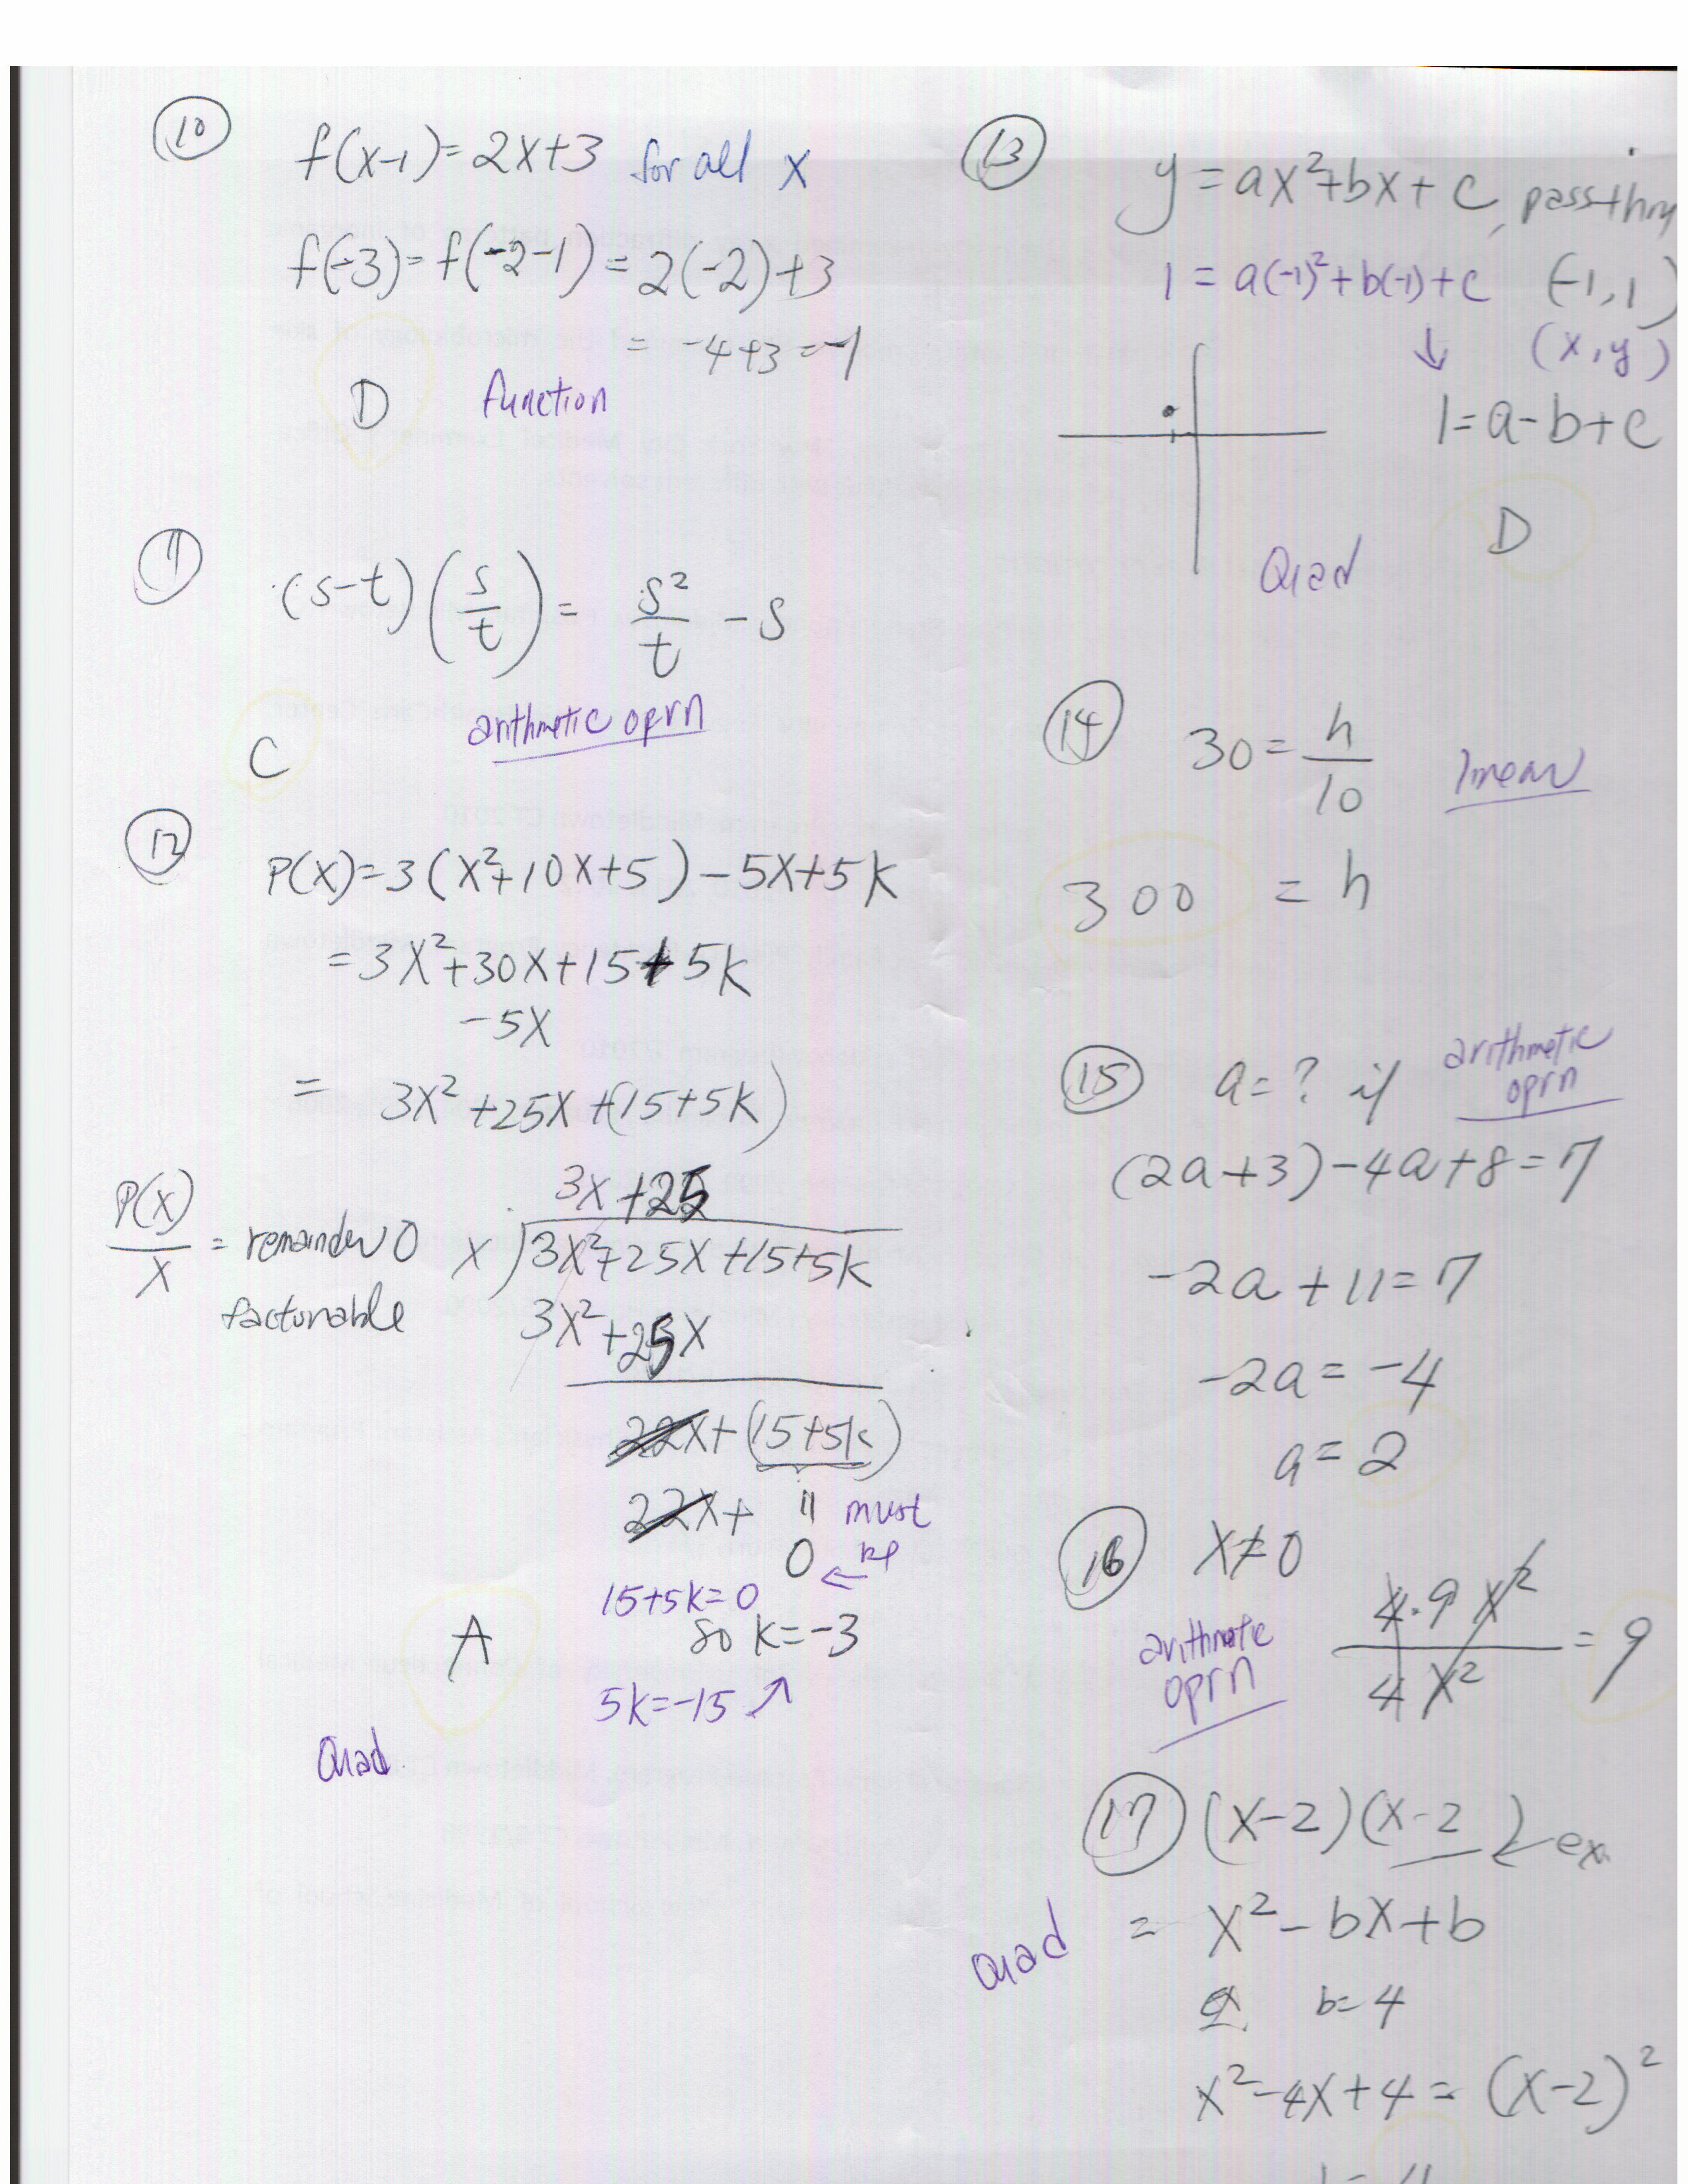 10
f(x-1)=2x+3 for all x
f(-3)=f(-2-1)=2(-2)+3
= -4+3=-1
D function
11
(s-t)(s/t)= s²/t -s
arithmetic oprn
C
12
P(X)=3(X²+10X+5)-5X+5k
=3X²+30X+15+5k
-5X
= 3X²+25X+(15+5k)
3X+25
P(X)/X = remainder 0 X)3X²+25X+15+5k
factorable 3X²+25X
22X+(15+5k)
22X+ 11 must
0 ← be
15+5k=0
so k=-3
A
5k=-15 ↗
Quad.
13
y=ax²+bx+c, pass thru
1=a(-1)²+b(-1)+c (-1,1)
↓ (x,y)
1=a-b+c
D
Quad
14
30=h/10 linear
300 = h
15 a=? if arithmetic oprn
(2a+3)-4a+8=7
-2a+11=7
-2a=-4
a=2
16 X≠0
4·9X²/4X² = 9
arithmetic
oprn
17 (X-2)(X-2) ← ex.
= X²-bX+b
Quad
b=4
X²-4X+4=(X-2)²